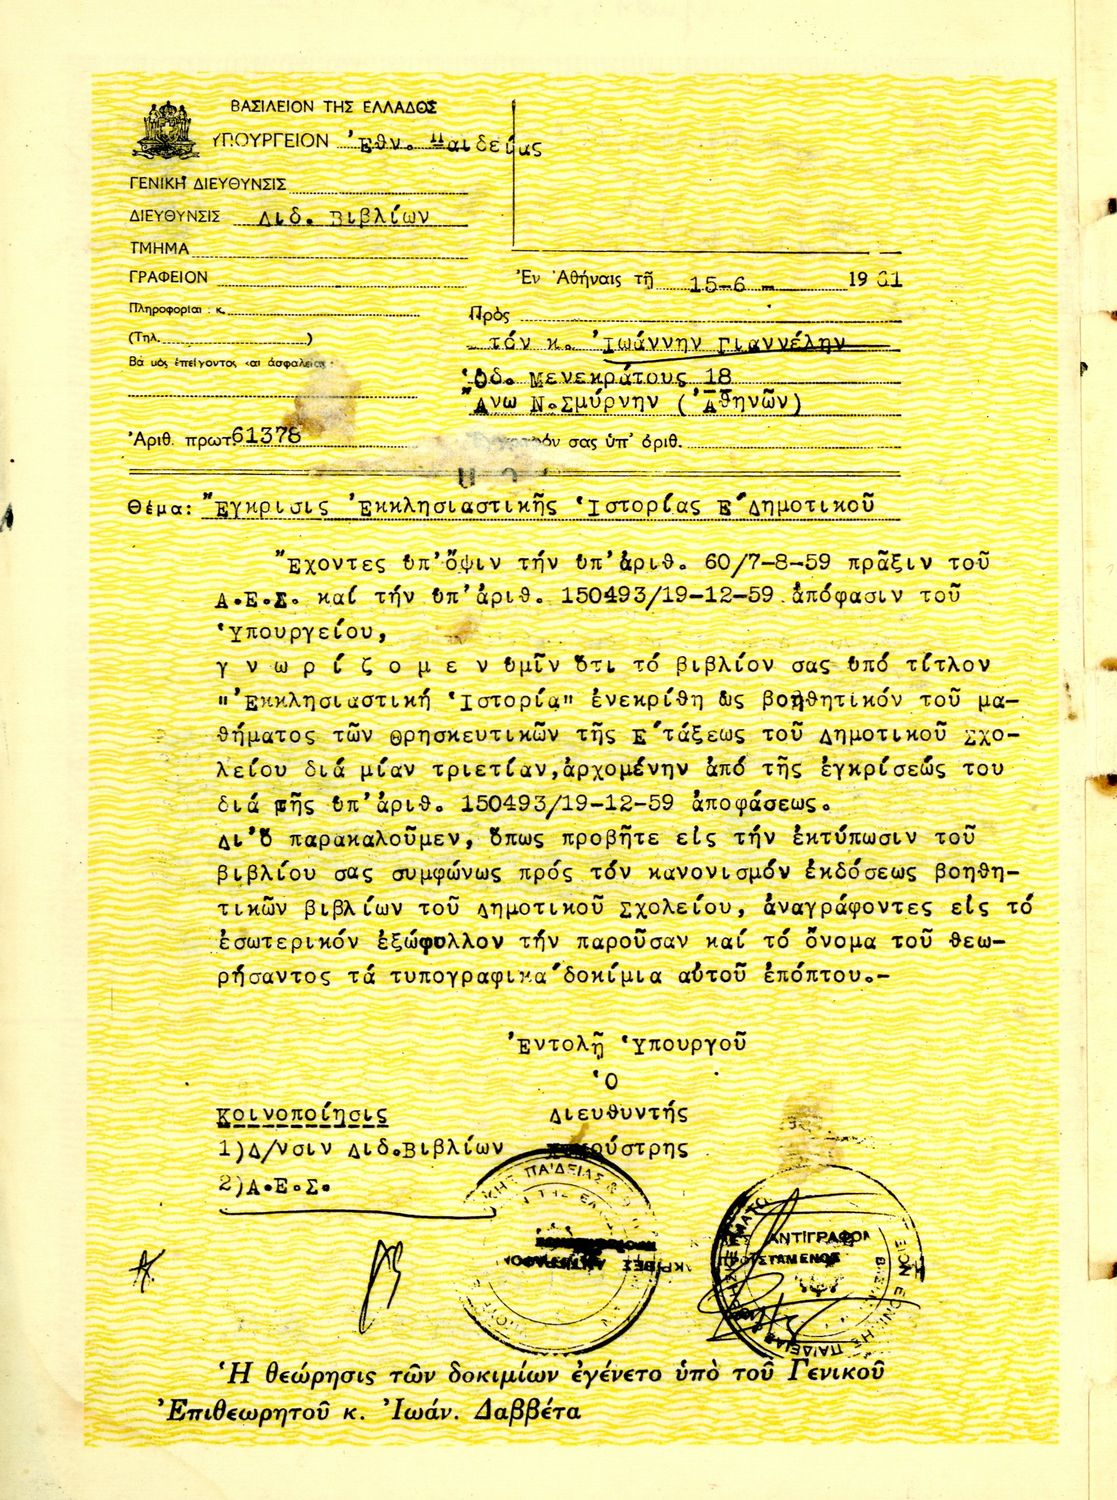 ΒΑΣΙΛΕΙΟΝ ΤΗΣ ΕΛΛΑΔΟΣ
ΥΠΟΥΡΓΕΙΟΝ Ἐθν. Παιδείας
ΓΕΝΙΚΗ ΔΙΕΥΘΥΝΣΙΣ
ΔΙΕΥΘΥΝΣΙΣ Διδ. Βιβλίων
ΤΜΗΜΑ
ΓΡΑΦΕΙΟΝ
Πληροφορίαι : κ.
(Τηλ. )
Βαθμὸς ἐπείγοντος καὶ ἀσφαλείας :
Ἀριθ. πρωτ. 61378
Ἐν Ἀθήναις τῇ 15-6- 1961
Πρὸς
τόν κ. Ἰωάννην Γιαννέλην
Ὁδ. Μενεκράτους 18
Ἄνω Ν.Σμύρνην (Ἀθηνῶν)
σας ὑπ' ἀριθ.
Θέμα: "Ἔγκρισις Ἐκκλησιαστικῆς Ἱστορίας Ε΄Δημοτικοῦ
Ἔχοντες ὑπ'ὄψιν τήν ὑπ'ἀριθ. 60/7-8-59 πρᾶξιν τοῦ
Α.Ε.Σ. καί τήν ὑπ'ἀριθ. 150493/19-12-59 ἀπόφασιν τοῦ
Ὑπουργείου,
γ ν ω ρ ί ζ ο μ ε ν ὑμῖν ὅτι τό βιβλίον σας ὑπό τίτλον
"Ἐκκλησιαστική Ἱστορία" ἐνεκρίθη ὡς βοηθητικόν τοῦ μα-
θήματος τῶν Θρησκευτικῶν τῆς Ε΄τάξεως τοῦ Δημοτικοῦ Σχο-
λείου διά μίαν τριετίαν,ἀρχομένην ἀπό τῆς ἐγκρίσεώς του
διά τῆς ὑπ'ἀριθ. 150493/19-12-59 ἀποφάσεως.
Δι'ὅ παρακαλοῦμεν, ὅπως προβῆτε εἰς τήν ἐκτύπωσιν τοῦ
βιβλίου σας συμφώνως πρός τόν κανονισμόν ἐκδόσεως βοηθη-
τικῶν βιβλίων τοῦ Δημοτικοῦ Σχολείου, ἀναγράφοντες εἰς τό
ἐσωτερικόν ἐξώφυλλον τήν παροῦσαν καί τό ὄνομα τοῦ θεω-
ρήσαντος τά τυπογραφικα΄δοκίμια αὐτοῦ ἐπόπτου.-
Ἐντολῇ Ὑπουργοῦ
Ὁ
Διευθυντής
Κοινοποίησις
1)Δ/νσιν Διδ.Βιβλίων
2)Α.Ε.Σ.
ΑΚΡΙΒΕΣ ΑΝΤΙΓΡΑΦΟΝ
ΑΝΤΙΓΡΑΦΟΝ
ΠΡΟΪΣΤΑΜΕΝΟΣ
Ἡ θεώρησις τῶν δοκιμίων ἐγένετο ὑπὸ τοῦ Γενικοῦ
Ἐπιθεωρητοῦ κ. Ἰωάν. Δαββέτα